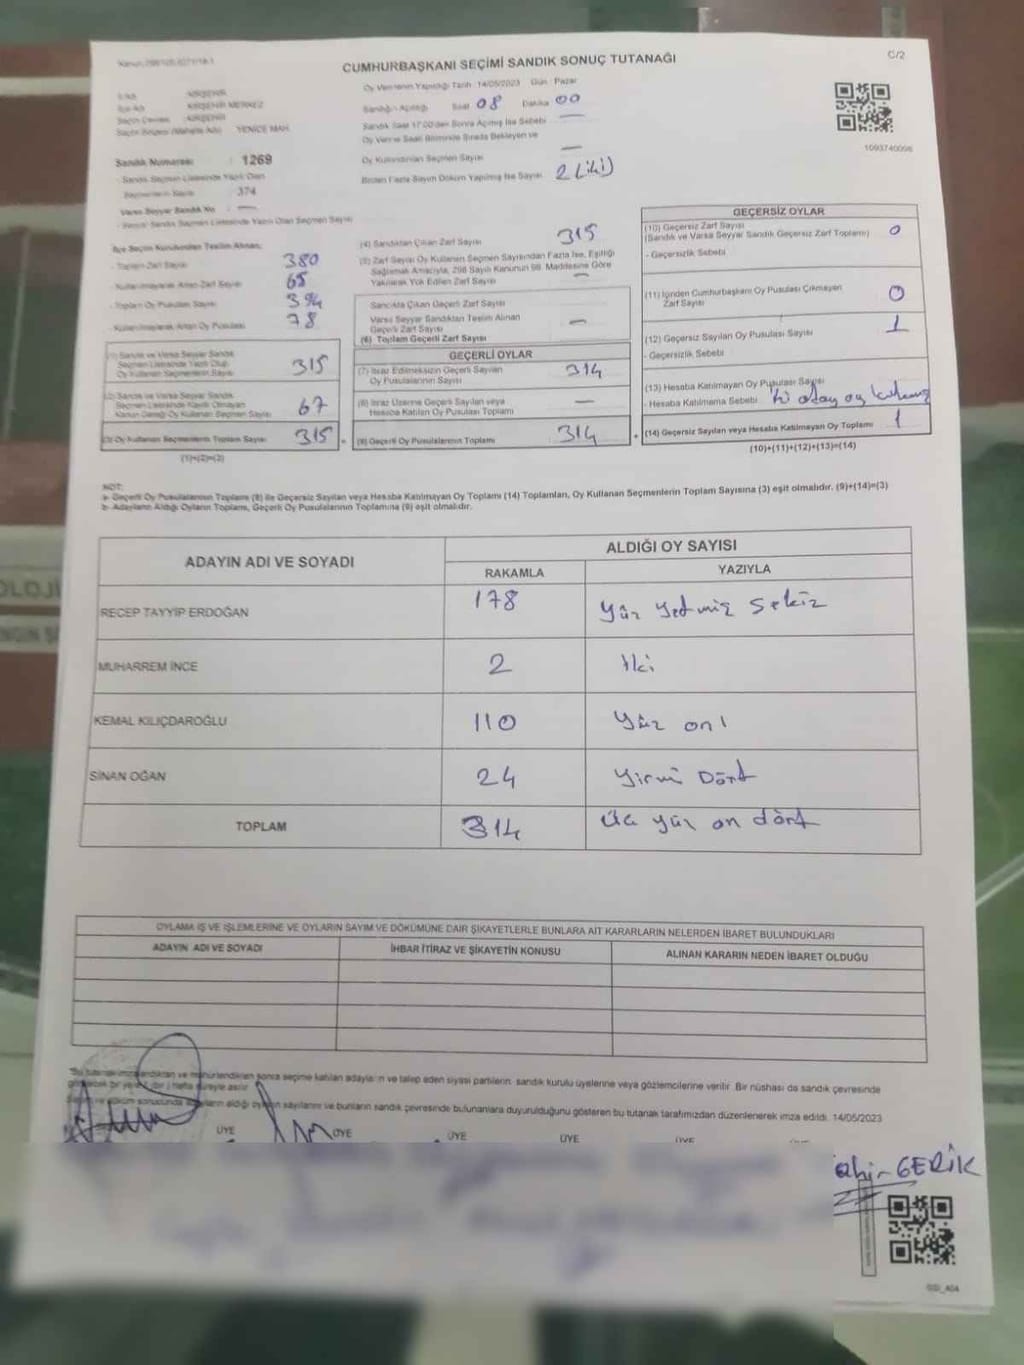 CUMHURBAŞKANI SEÇİMİ SANDIK SONUÇ TUTANAĞI
C/2
Oy Vermenin Yapıldığı Tarih 14/05/2023 Gün Pazar
Sandığın Açıldığı Saat 08 Dakika 00
Sandık Saat 17:00'den Sonra Açılmış İse Sebebi —
Oy Verme Saati Bitiminde Sırada Bekleyen ve
Oy Kullandırılan Seçmen Sayısı —
Birden Fazla Sayım Döküm Yapılmış İse Sayısı 2 (iki)
1093740096
İl Adı : KIRŞEHİR
İlçe Adı : KIRŞEHİR MERKEZ
Seçim Çevresi : KIRŞEHİR
Seçim Bölgesi (Mahalle Adı) YENİCE MAH.
Sandık Numarası : 1269
- Sandık Seçmen Listesinde Yazılı Olan
Seçmenlerin Sayısı : 374
Varsa Seyyar Sandık No : —
- Seyyar Sandık Seçmen Listesinde Yazılı Olan Seçmen Sayısı
İlçe Seçim Kurulundan Teslim Alınan;
- Toplam Zarf Sayısı 380
- Kullanılmayarak Artan Zarf Sayısı 65
- Toplam Oy Pusulası Sayısı 394
- Kullanılmayarak Artan Oy Pusulası 78
(1) Sandık ve Varsa Seyyar Sandık
Seçmen Listesinde Yazılı Olup
Oy Kullanan Seçmenlerin Sayısı 315
(2) Sandık ve Varsa Seyyar Sandık
Seçmen Listesinde Kayıtlı Olmayan
Kanun Gereği Oy Kullanan Seçmen Sayısı 67
(3) Oy Kullanan Seçmenlerin Toplam Sayısı 315
(1)+(2)=(3)
(4) Sandıktan Çıkan Zarf Sayısı 315
(5) Zarf Sayısı Oy Kullanan Seçmen Sayısından Fazla İse, Eşitliği
Sağlamak Amacıyla, 298 Sayılı Kanunun 98. Maddesine Göre
Yakılarak Yok Edilen Zarf Sayısı —
Sandıkta Çıkan Geçerli Zarf Sayısı
Varsa Seyyar Sandıktan Teslim Alınan
Geçerli Zarf Sayısı —
(6) Toplam Geçerli Zarf Sayısı
GEÇERLİ OYLAR
(7) İtiraz Edilmeksizin Geçerli Sayılan
Oy Pusulalarının Sayısı 314
(8) İtiraz Üzerine Geçerli Sayılan veya
Hesaba Katılan Oy Pusulası Toplamı —
(9) Geçerli Oy Pusulalarının Toplamı 314
GEÇERSİZ OYLAR
(10) Geçersiz Zarf Sayısı
(Sandık ve Varsa Seyyar Sandık Geçersiz Zarf Toplamı) 0
- Geçersizlik Sebebi
(11) İçinden Cumhurbaşkanı Oy Pusulası Çıkmayan
Zarf Sayısı 0
(12) Geçersiz Sayılan Oy Pusulası Sayısı 1
- Geçersizlik Sebebi
(13) Hesaba Katılmayan Oy Pusulası Sayısı
- Hesaba Katılmama Sebebi
(14) Geçersiz Sayılan veya Hesaba Katılmayan Oy Toplamı 1
(10)+(11)+(12)+(13)=(14)
NOT:
a- Geçerli Oy Pusulalarının Toplamı (9) ile Geçersiz Sayılan veya Hesaba Katılmayan Oy Toplamı (14) Toplamları, Oy Kullanan Seçmenlerin Toplam Sayısına (3) eşit olmalıdır. (9)+(14)=(3)
b- Adayların Aldığı Oyların Toplamı, Geçerli Oy Pusulalarının Toplamına (9) eşit olmalıdır.
ADAYIN ADI VE SOYADI
ALDIĞI OY SAYISI
RAKAMLA YAZIYLA
RECEP TAYYİP ERDOĞAN 178 Yüz Yetmiş Sekiz
MUHARREM İNCE 2 İki
KEMAL KILIÇDAROĞLU 110 Yüz on
SİNAN OĞAN 24 Yirmi Dört
TOPLAM 314 Üç yüz on dört
OYLAMA İŞ VE İŞLEMLERİNE VE OYLARIN SAYIM VE DÖKÜMÜNE DAİR ŞİKAYETLERLE BUNLARA AİT KARARLARIN NELERDEN İBARET BULUNDUKLARI
ADAYIN ADI VE SOYADI İHBAR İTİRAZ VE ŞİKAYETİN KONUSU ALINAN KARARIN NEDEN İBARET OLDUĞU
sonra seçime katılan adayların ve talep eden siyasi partilerin sandık kurulu üyelerine veya gözlemcilerine verilir. Bir nüshası da sandık çevresinde
sayılarını ve bunların sandık çevresinde bulunanlara duyurulduğunu gösteren bu tutanak tarafımızdan düzenlenerek imza edildi. 14/05/2023
ÜYE ÜYE ÜYE ÜYE ÜYE
GERİK